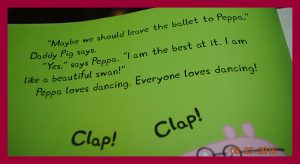 "Maybe we should leave the ballet to Peppa,"
Daddy Pig says.
"Yes," says Peppa. "I am the best at it. I am
like a beautiful swan!"
Peppa loves dancing. Everyone loves dancing!
Clap!
Clap!